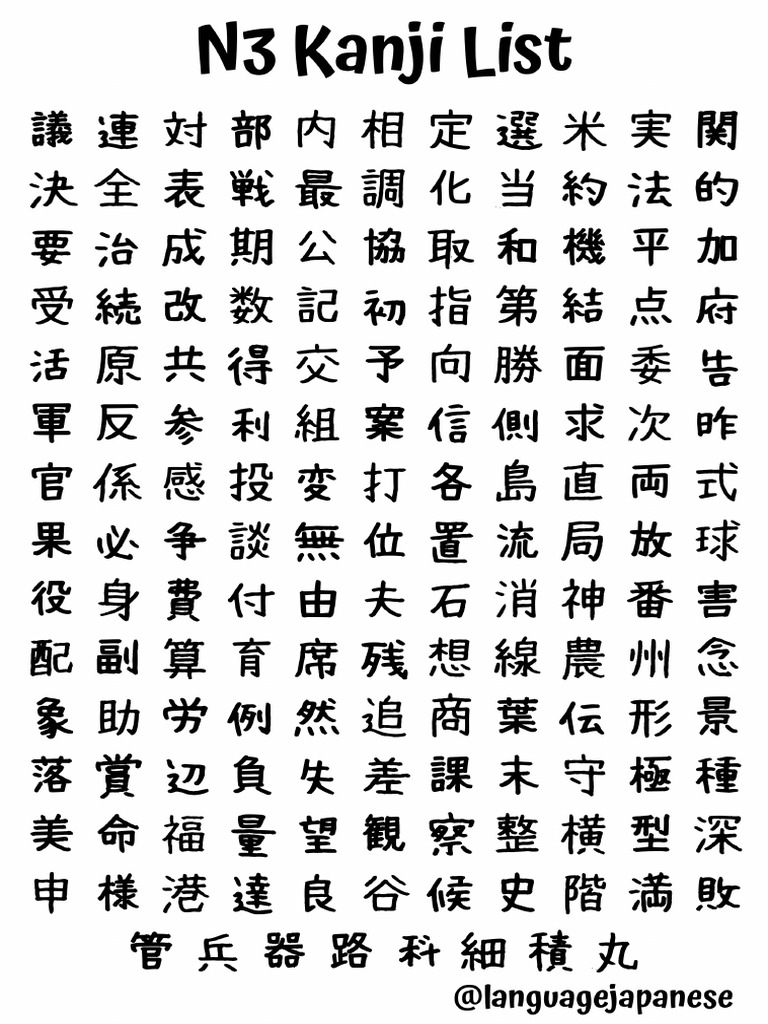 N3 Kanji List
議 連 対 部 内 相 定 選 米 実 関
決 全 表 戦 最 調 化 当 約 法 的
要 治 成 期 公 協 取 和 機 平 加
受 続 改 数 記 初 指 第 結 点 府
活 原 共 得 交 予 向 勝 面 委 告
軍 反 参 利 組 案 信 側 求 次 昨
官 係 感 投 変 打 各 島 直 両 式
果 必 争 談 無 位 置 流 局 放 球
役 身 費 付 由 夫 石 消 神 番 害
配 副 算 育 席 残 想 線 農 州 念
象 助 労 例 然 追 商 葉 伝 形 景
落 賞 辺 負 失 差 課 末 守 極 種
美 命 福 量 望 観 察 整 横 型 深
申 様 港 達 良 谷 候 史 階 満 敗
管 兵 器 路 科 細 積 丸
@languagejapanese